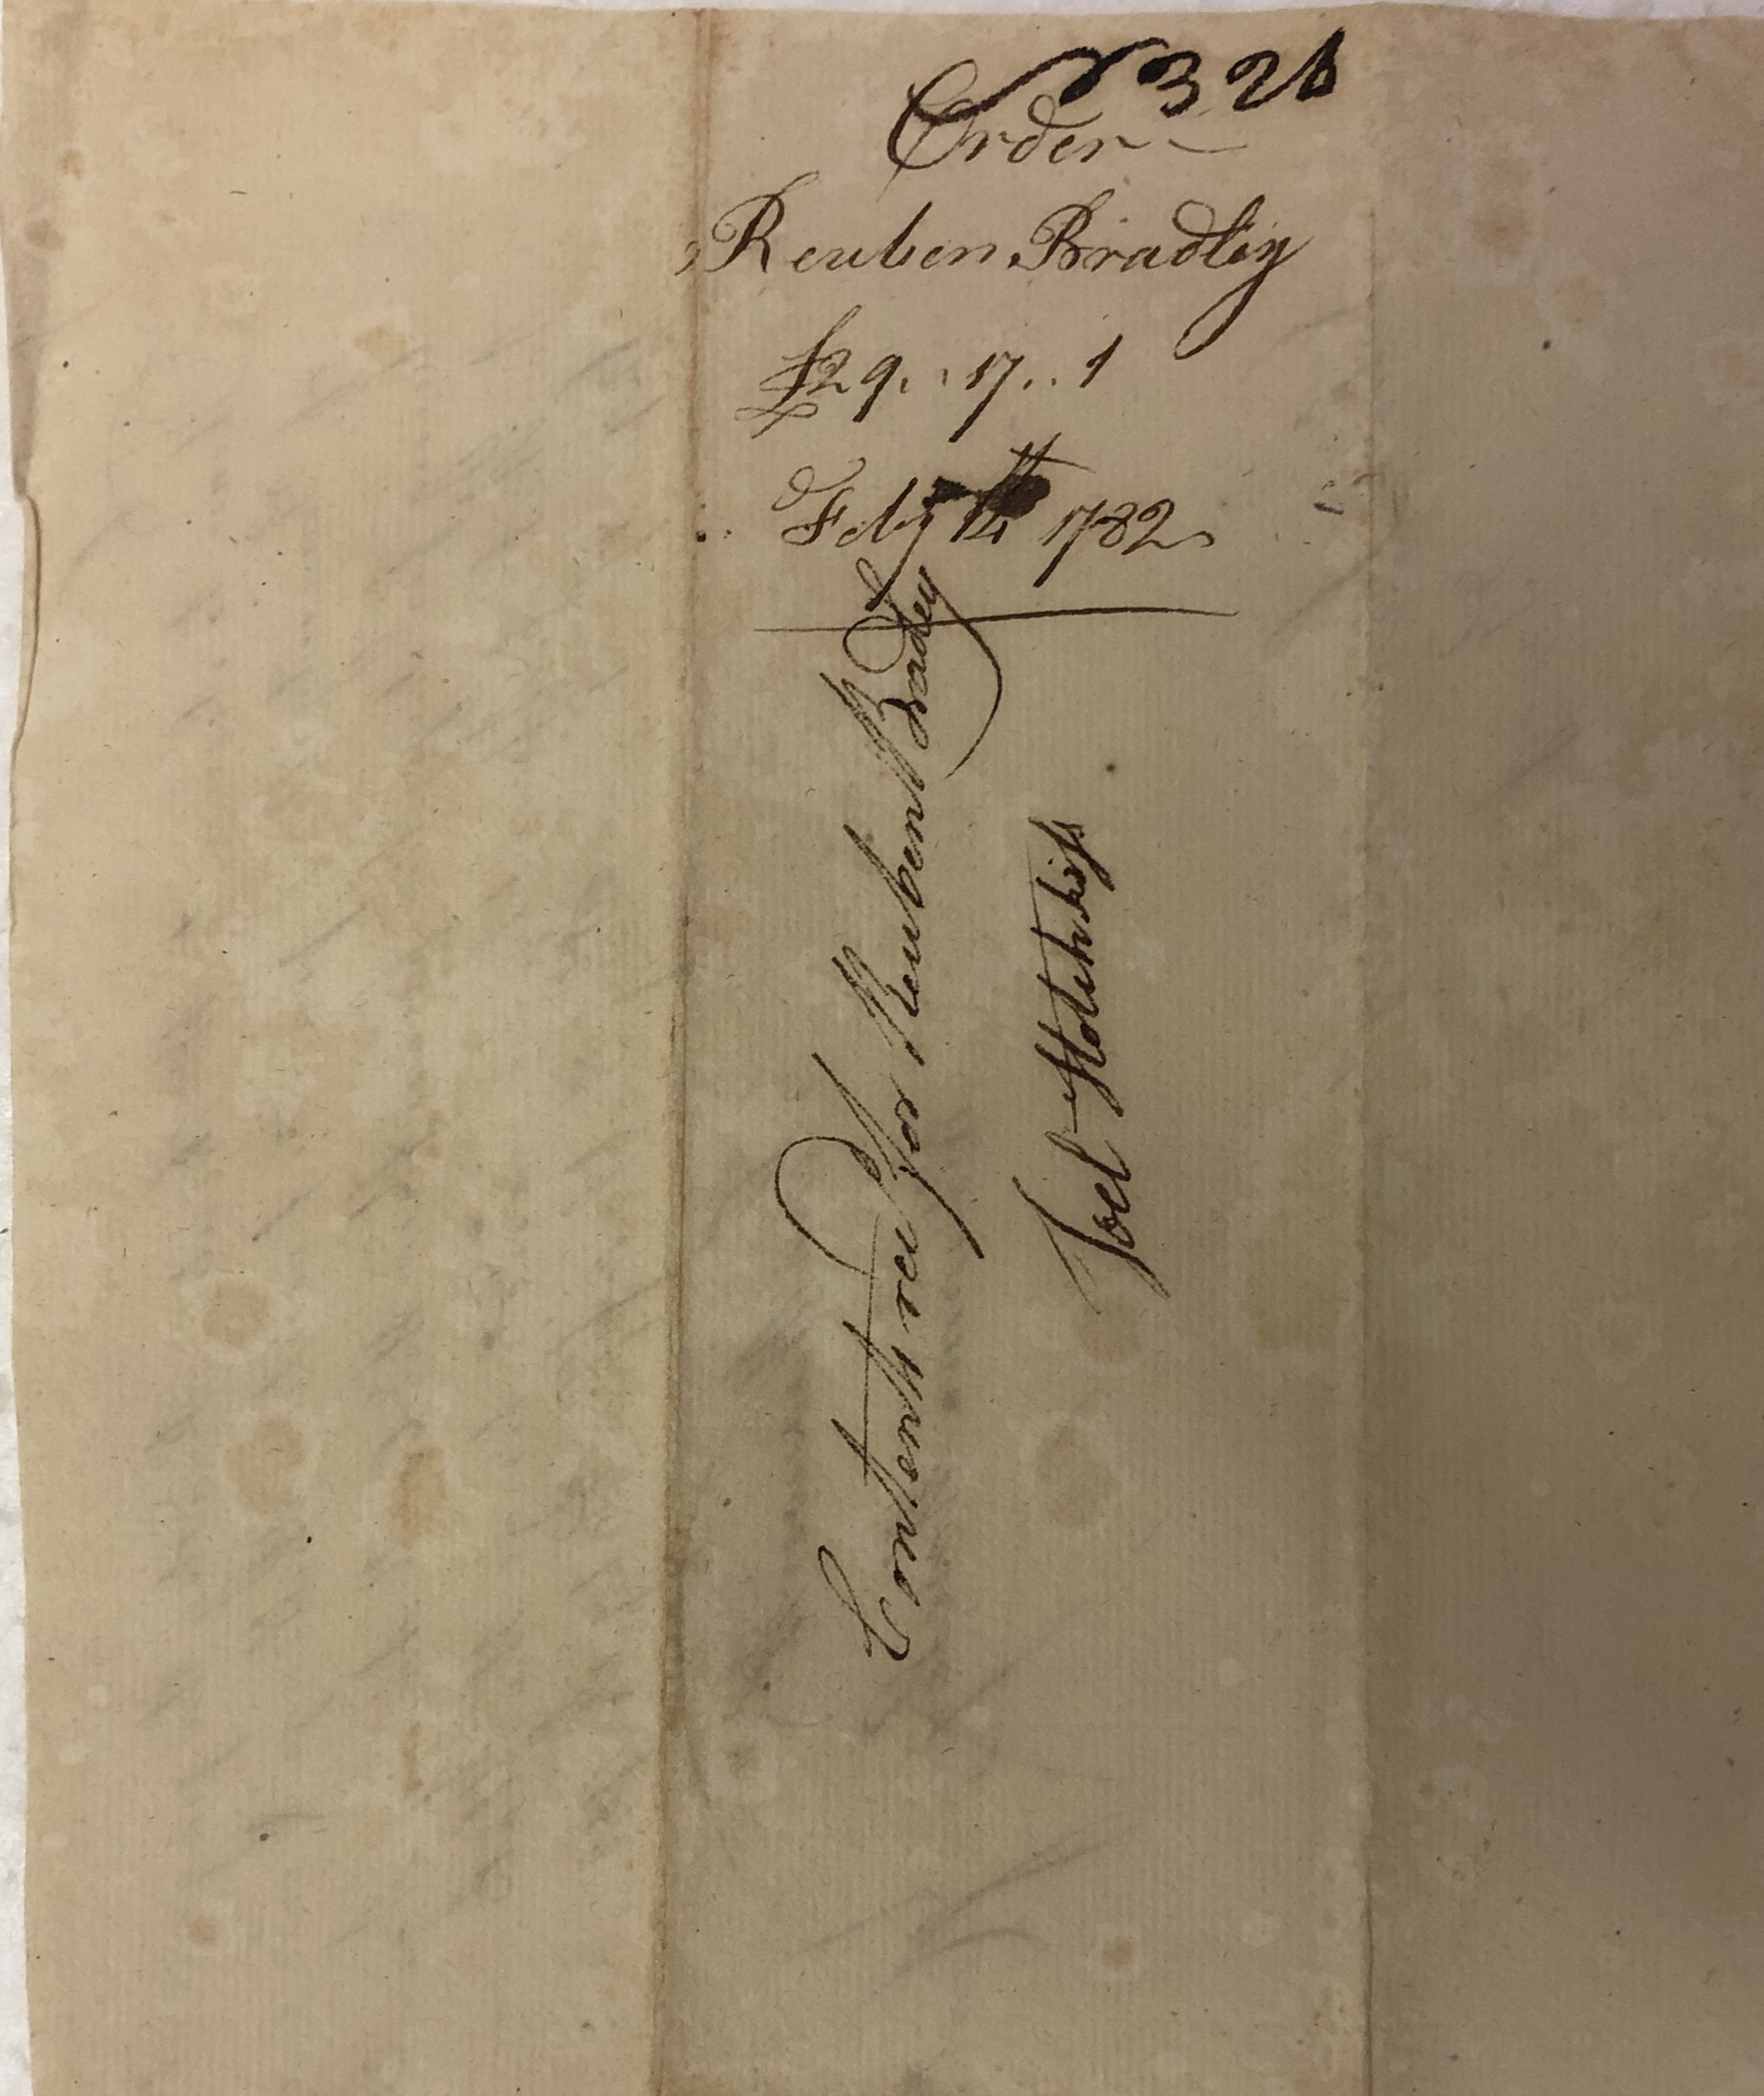 326
Order
Reuben Bradley
£29..17..1
Feby 14th 1782
Contents recd for Reuben Bradley
Joel Hotchkiss